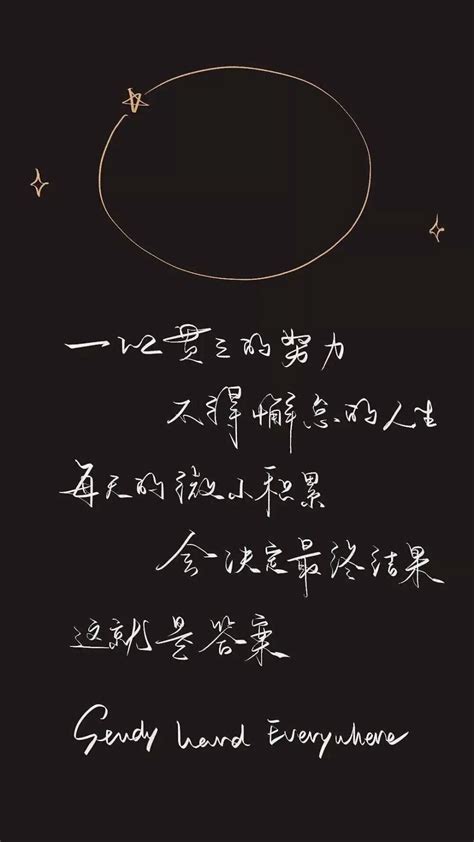 一以贯之的努力
不得懈怠的人生
每天的微小积累
会决定最终结果
这就是答案
hard Everywhere